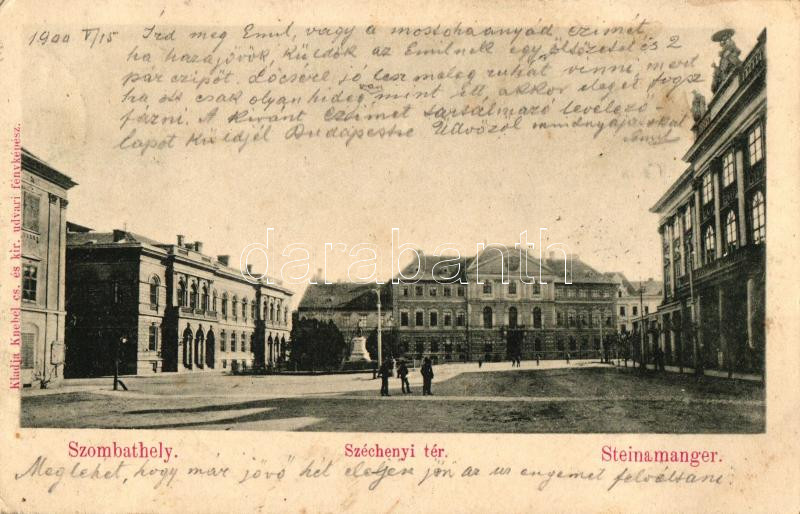 1900 V/15
Írd meg Emil, vagy a mostohaanyád czímét,
ha haza jövök küldök az Emilnek egy öltözetet és 2
pár czipőt. Lőcsére jó lesz meleg ruhát vinni mert
ha ott csak olyan hideg van mint itt akkor eleget fogsz
fázni. A kivánt czímet tarsalmazó levelező
lapot küldjél Budapestre Üdvözöl mindnyájatokat
Emil
darabanth.com
Kiadja Knebel cs. és kir. udvari fényképész.
Szombathely. Széchenyi tér. Steinamanger.
Meglehet, hogy már jövő hét elején jön az úr engemet felváltani.